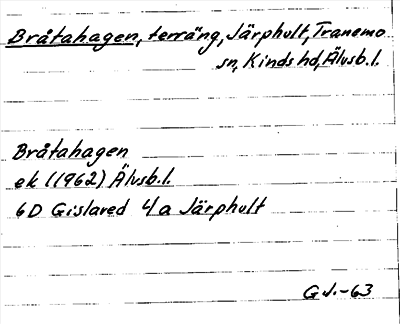 Bråtahagen, terräng, Järphult, Tranemo
sn, Kinds hd, Älvsb.l.
Bråtahagen
ek (1962) Älvsb.l.
6D Gislaved 4a Järphult
G.J.-63